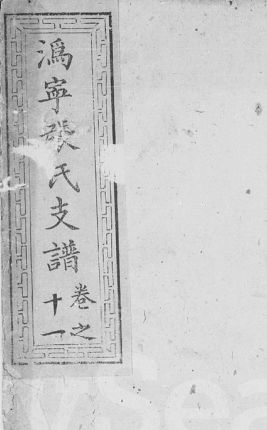 溈寧張氏支譜
卷之
十一